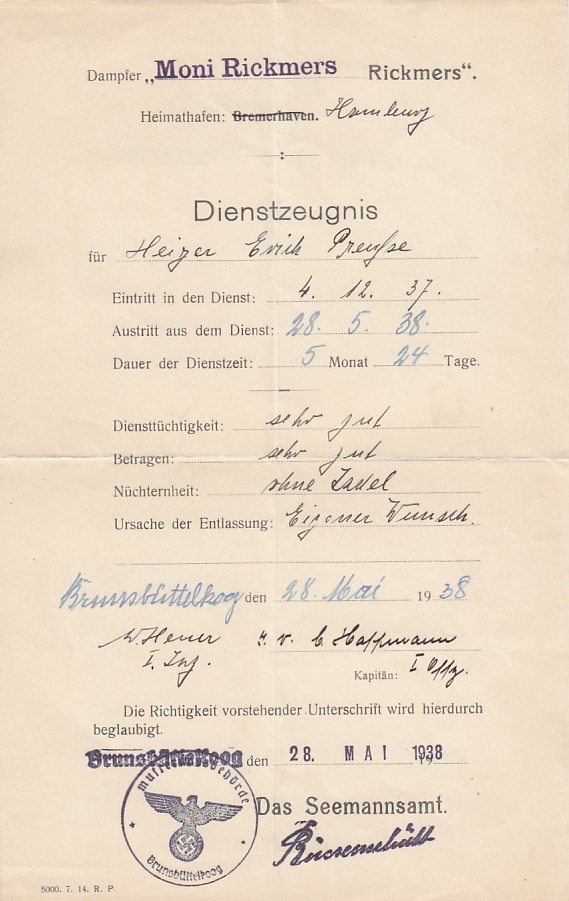 Dampfer „Moni Rickmers Rickmers“.
Heimathafen: Bremerhaven. Hamburg
Dienstzeugnis
für Heizer Erich Preuße
Eintritt in den Dienst: 4. 12. 37.
Austritt aus dem Dienst: 28. 5. 38.
Dauer der Dienstzeit: 5 Monat 24 Tage.
Diensttüchtigkeit: sehr gut
Betragen: sehr gut
Nüchternheit: ohne Tadel
Ursache der Entlassung: Eigener Wunsch.
Brunsbüttelkoog den 28. Mai 1938
I. Ing.
Kapitän: I Offz.
Die Richtigkeit vorstehender Unterschrift wird hierdurch
beglaubigt.
Brunsbüttelkoog den 28. MAI 1938
Musterungsbehörde
Brunsbüttelkoog
Das Seemannsamt.
5000. 7. 14. R. P.